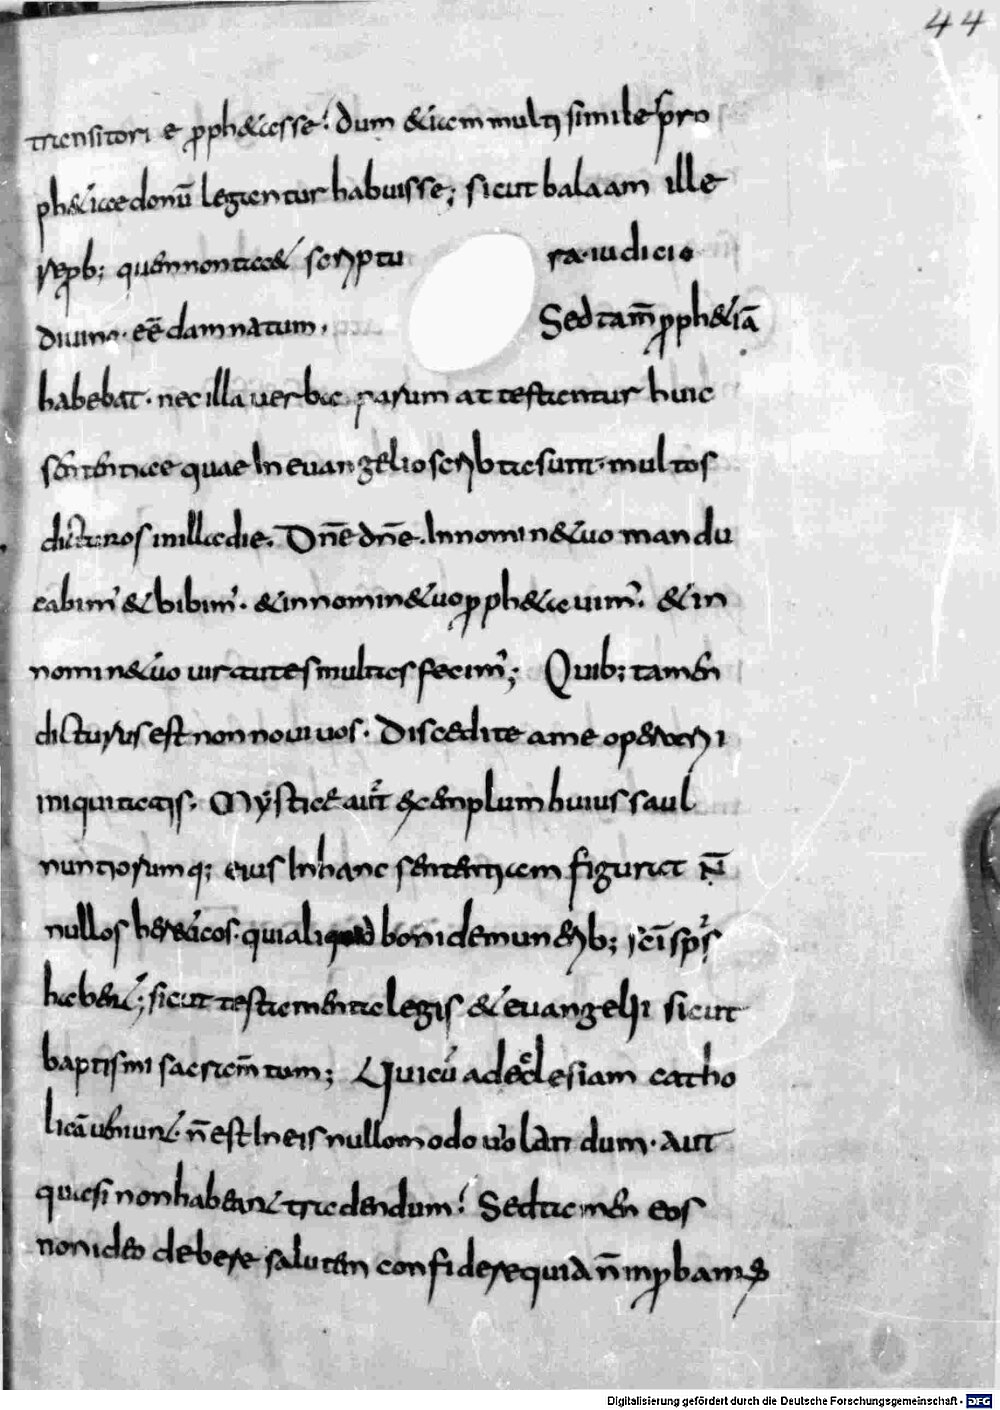 44
transitori e ꝓph&asse; dum &iam multi simile pro
ph&iae donū legantur habuisse; sicut balaam ille
reꝓb; quem non tac& scriptu ra. iudicio
diuino. eē damnatum. Sed tam̄ ꝓph&iā
habebat. nec illa uerba parum attestantur huic
sententiae quae In euangelio scribta sunt. multos
dicturos in illa die. Dn̄e dn̄e. In nomin&uo mandu
cabim' & bibim'. & in nomin&uo ꝓph&auim'. & in
nomin&uo uirtutes multas fecim'; Quib; tamen
dicturus est non noui uos. Discedite a me operarii
iniquitatis. Mystice aut̄ exemplum huius saul
nuntiorumq; eius In hanc sententiam figurat N̄
nullos her&icos. qui aliquid boni de munerib; sc̄i sp̄s
haben&; sicut testamenta legis & euangelii sicut
baptismi sacram̄tum; Qui cū ad ecclesiam catho
licā uen̄iun&. n̄ est In eis nullomodo uiolandum. aut
quasi non habean& tradendum; Sed tamen eos
non ideo debere salutem confidere quia n̄ inꝓbamus
Digitalisierung gefördert durch die Deutsche Forschungsgemeinschaft - DFG